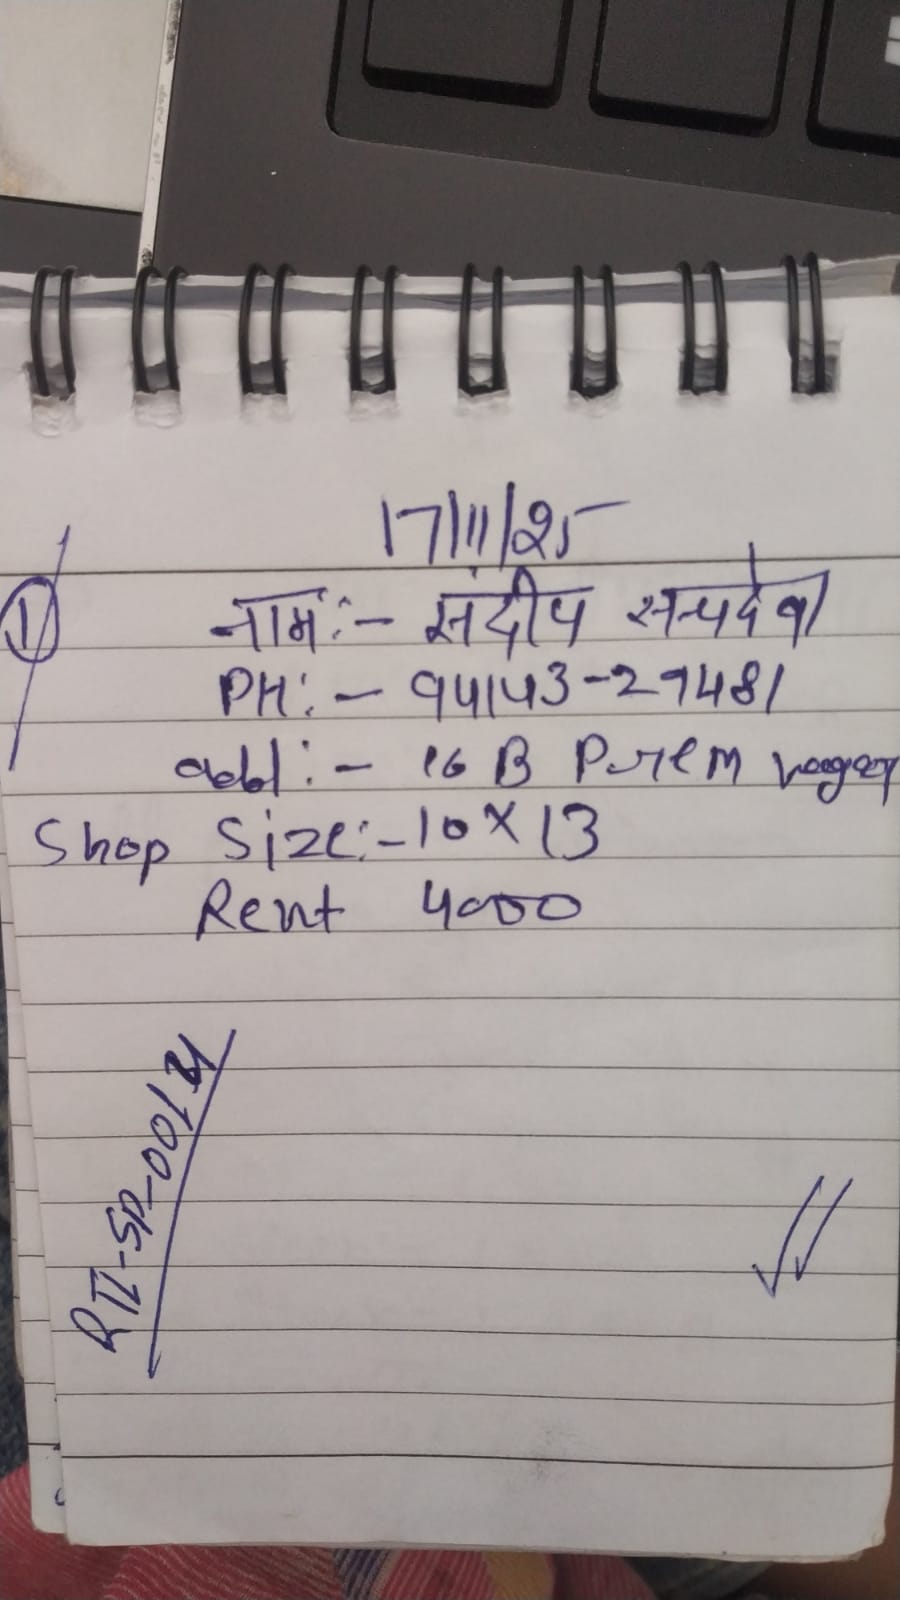 17/11/25
① नाम:- संदीप सत्यदेवा
PH:- 94143-29481
add:- 16 B Purem nagar
Shop Size:- 10 X 13
Rent 4000
RTI-SP-001